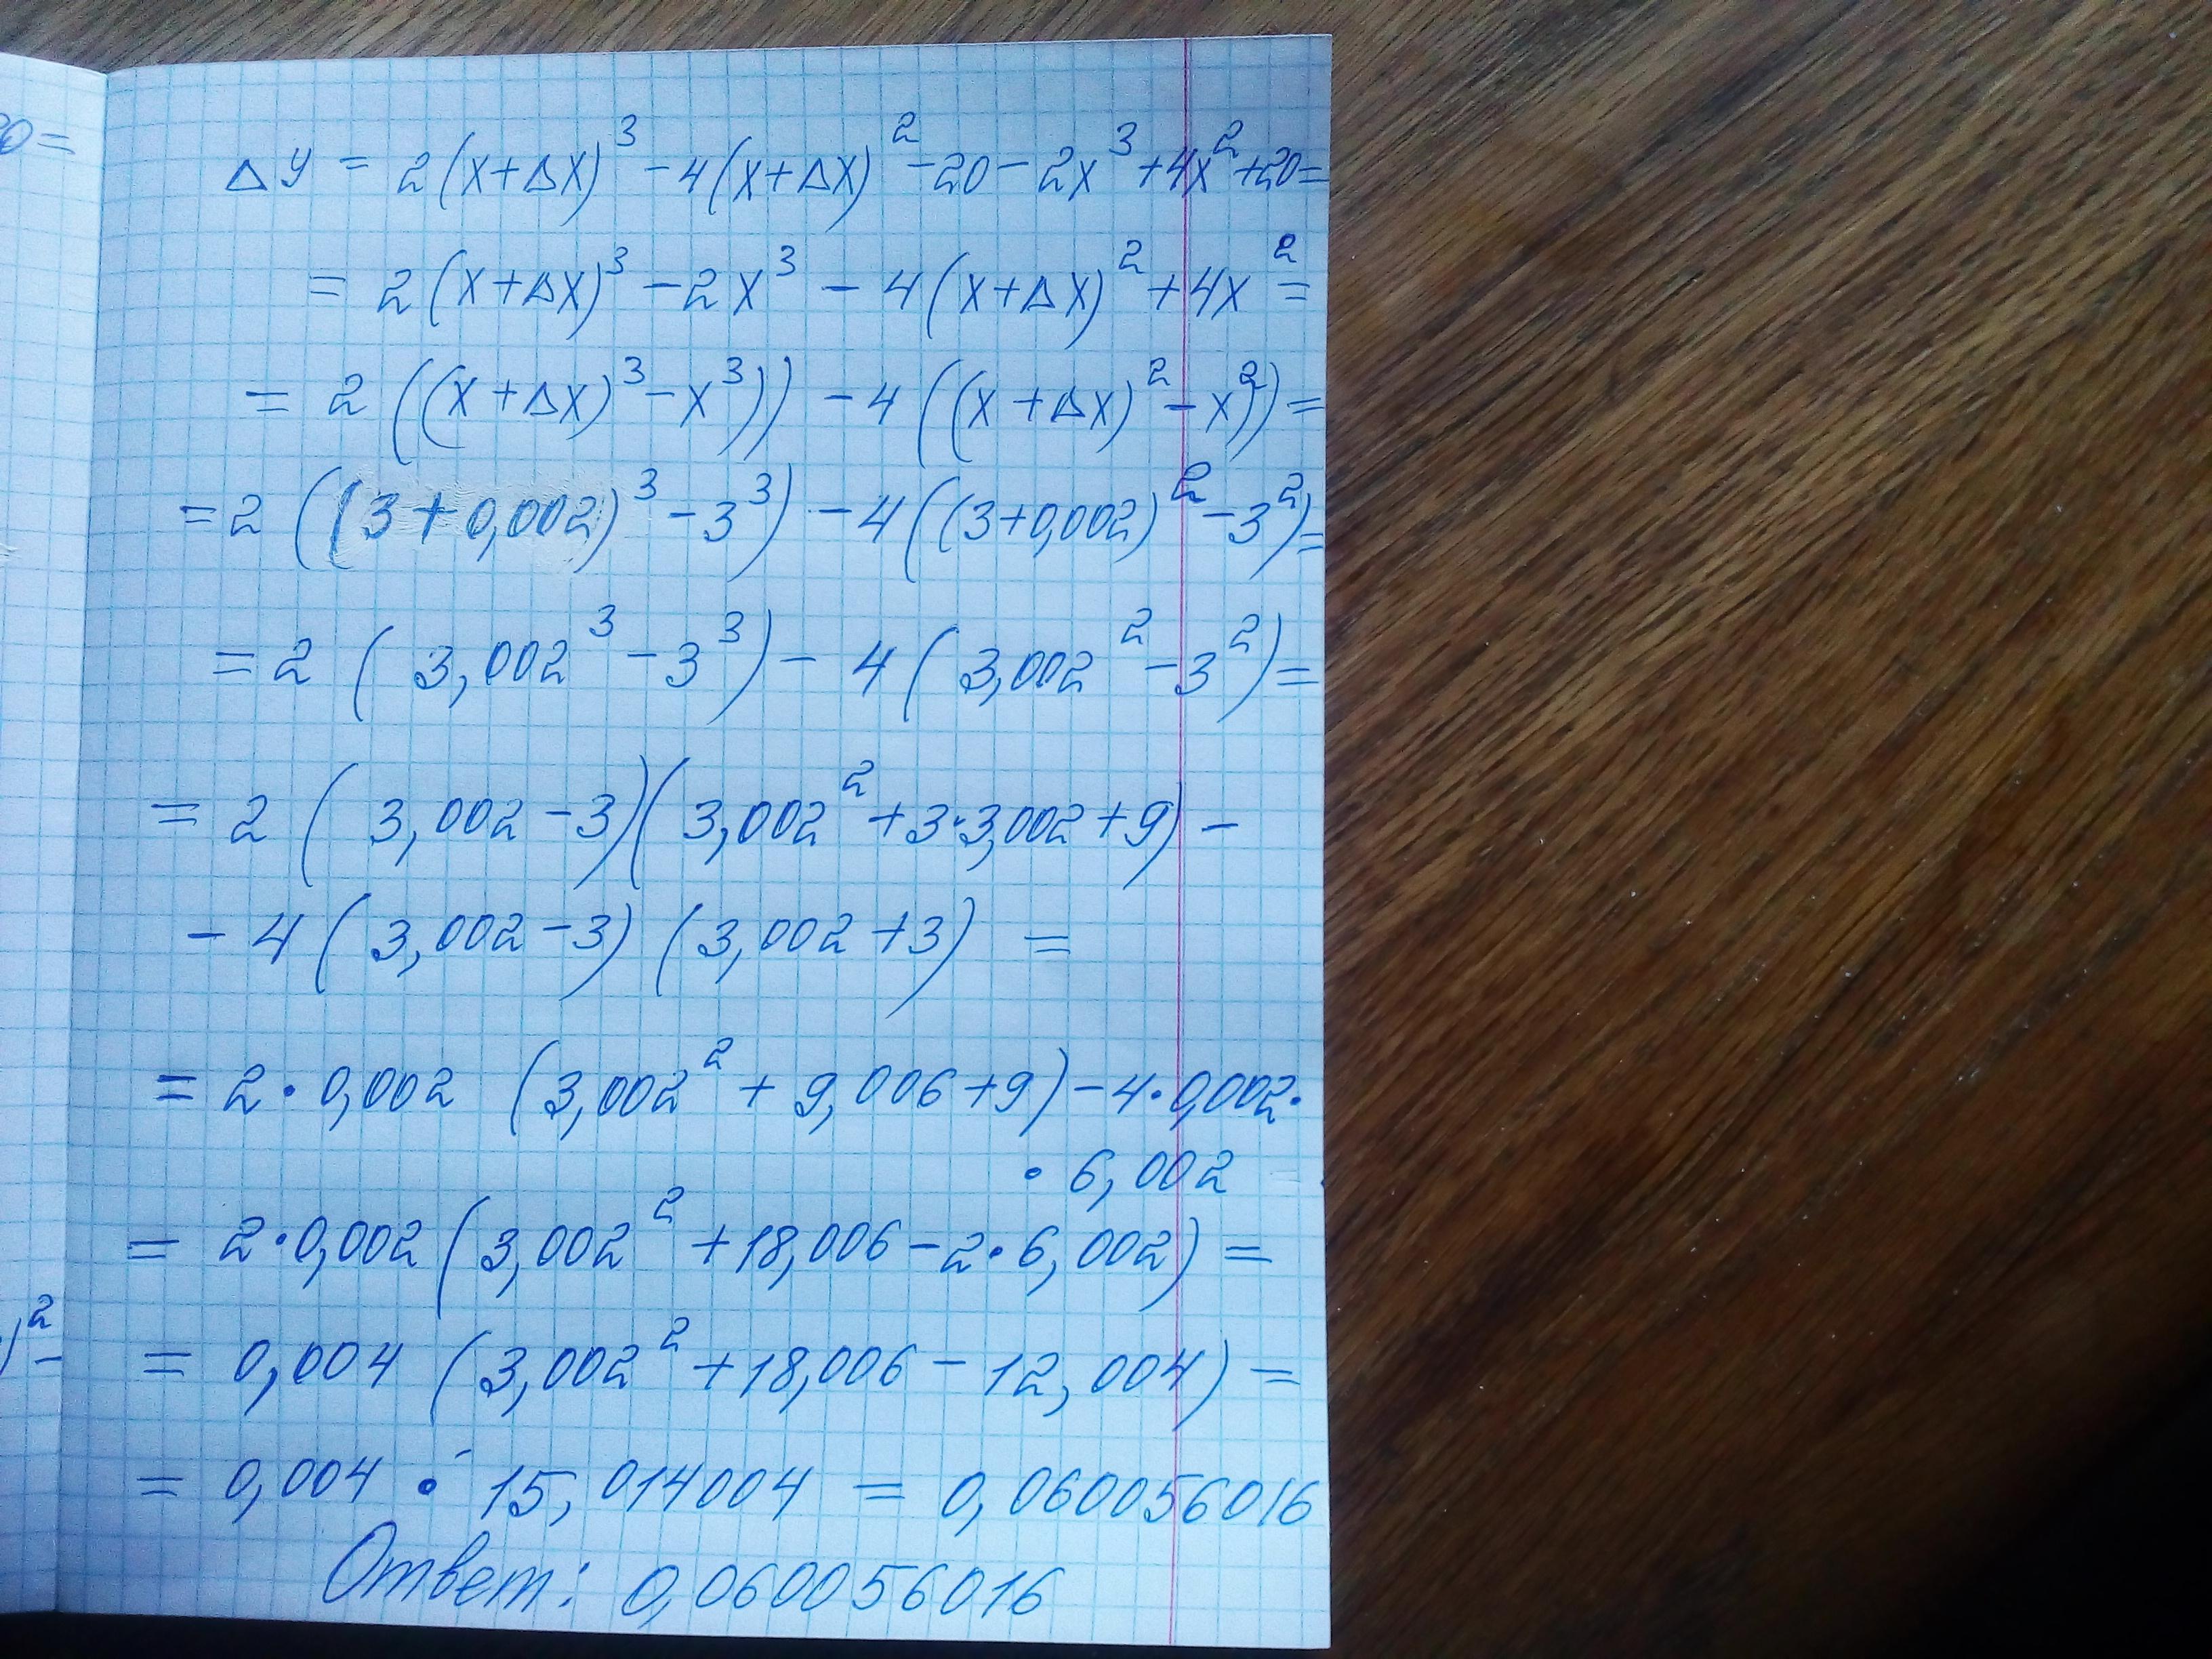 20=
Δy = 2(x+Δx)³ -4(x+Δx)² -20 - 2x³ +4x² +20=
= 2(x+Δx)³ -2x³ - 4(x+Δx)² +4x² =
= 2((x+Δx)³ -x³)) -4((x+Δx)² -x²)=
=2((3+0,002)³ -3³) -4((3+0,002)² -3²)=
=2(3,002³ -3³) - 4(3,002² -3²)=
= 2(3,002-3)(3,002² +3·3,002+9) -
- 4(3,002-3)(3,002+3) =
= 2·0,002 (3,002² + 9,006+9) -4·0,002·
· 6,002
= 2·0,002(3,002² +18,006-2·6,002) =
)² -
= 0,004 (3,002² +18,006 - 12,004) =
= 0,004 · 15,014004 = 0,060056016
Ответ: 0,060056016